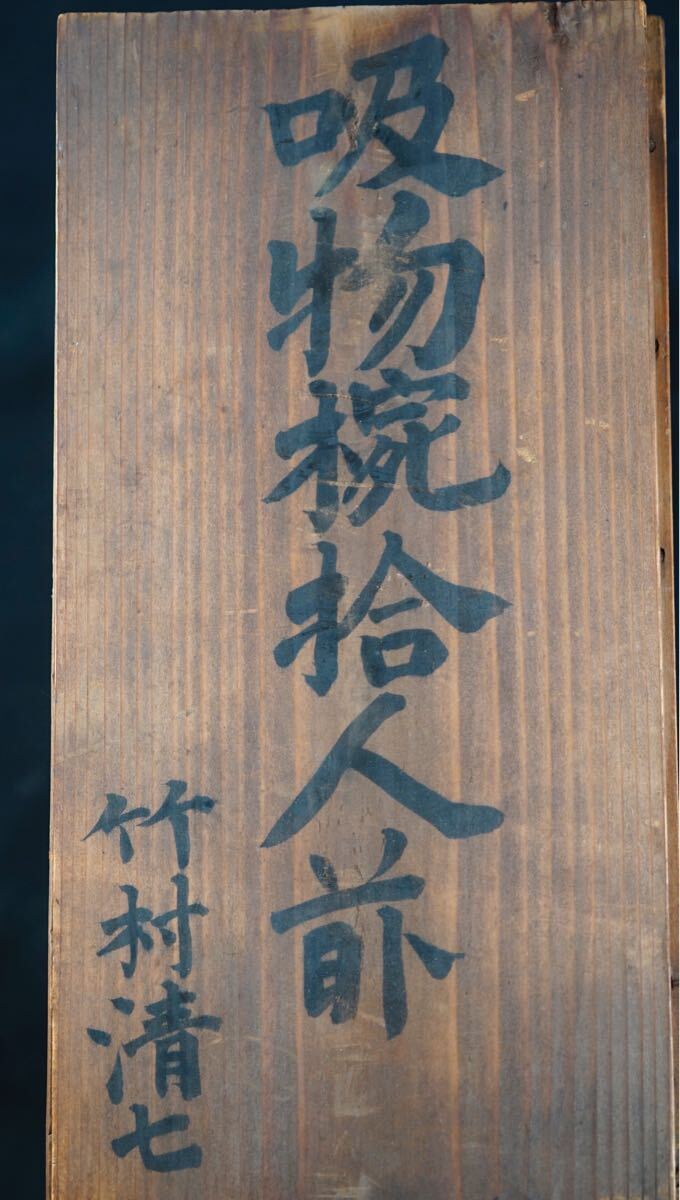 吸物椀拾人前
竹村清七